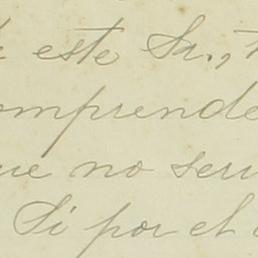 este Sr.,
comprende
que no serv
Si por el